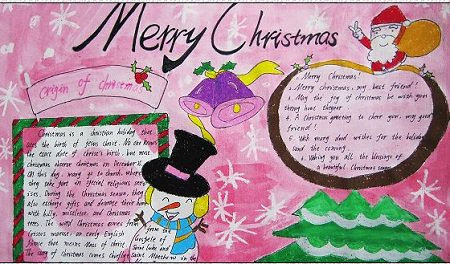 Merry Christmas
Origin of Christmas
Christmas is a christian holiday that
the birth of jesus christ. No one knows
the exact date of christ's birth, but most
christians observe christmas on December 25.
On this day, many go to church, where
they take part in special religious
During the Christmas season, they
also exchange gifts and decorate their
with holly, misteltoe, and Christmas
trees. The word Christmas comes from
an early English
that means Mass of christ
The story of Christmas comes chiefly
from the
Gospels of
Saint Luke and
Saint Matthew in the
1. Merry Christmas!
2. Merry christmas, my best friend!
3. May the joy of christmas be with you
4. A Christmas greeting to cheer you, my good
friend!
5. good wishes for the holiday
and the coming
6. Wishing you all the blessings of
a beautiful Christmas season